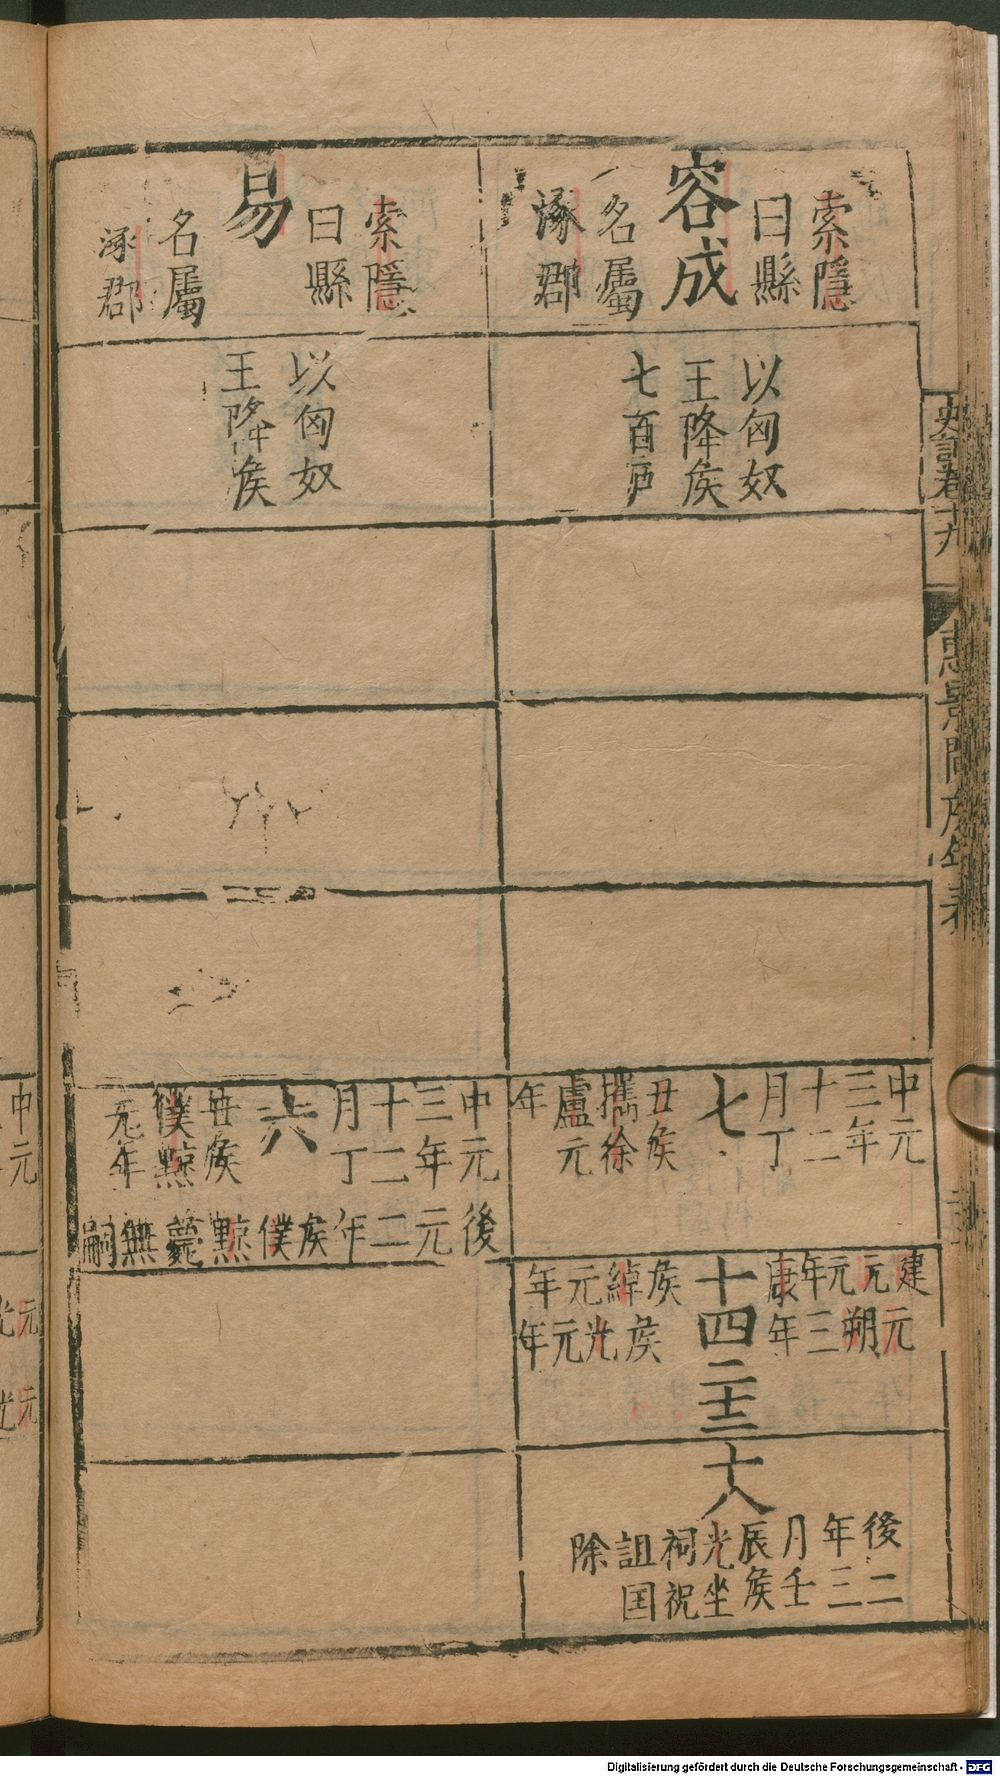 索隱
曰縣
容成
名屬
涿郡
以匈奴
王降侯
七百戸
中元
三年
十二
月丁
七
丑侯
攜徐
盧元
年
建元
元朔
元三
年年
康
十四
侯侯
綽光
元元
年年
二十三
十八
後二
年三
月壬
辰侯
光坐
祠祝
詛国
除
索隱
曰縣
易
名屬
涿郡
以匈奴
王降侯
中元
三年
十二
月丁
六
丑侯
僕䵣
元年
後元二年侯僕䵣薨無嗣
史記卷十九
惠景間侯年表
中元
Digitalisierung gefördert durch die Deutsche Forschungsgemeinschaft - DFG